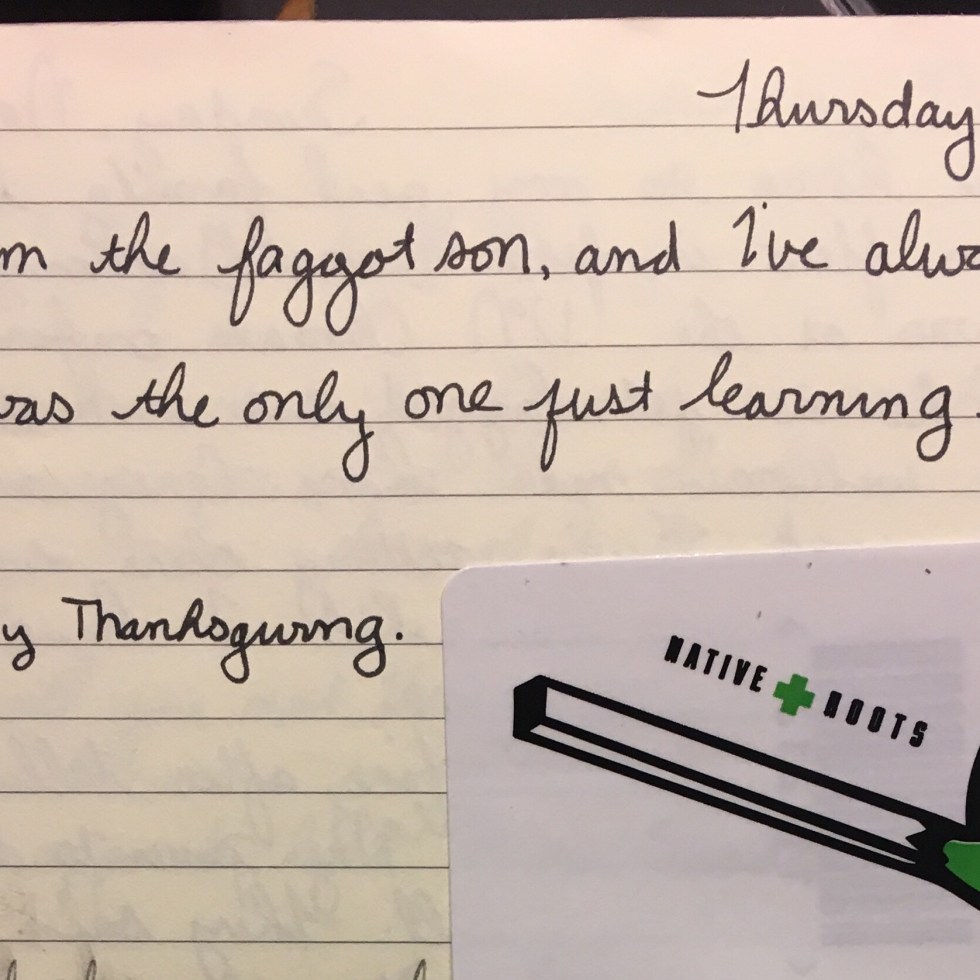 Thursday
m the faggot son, and I've alwa
was the only one just learning
y Thanksgiving.
NATIVE ROOTS